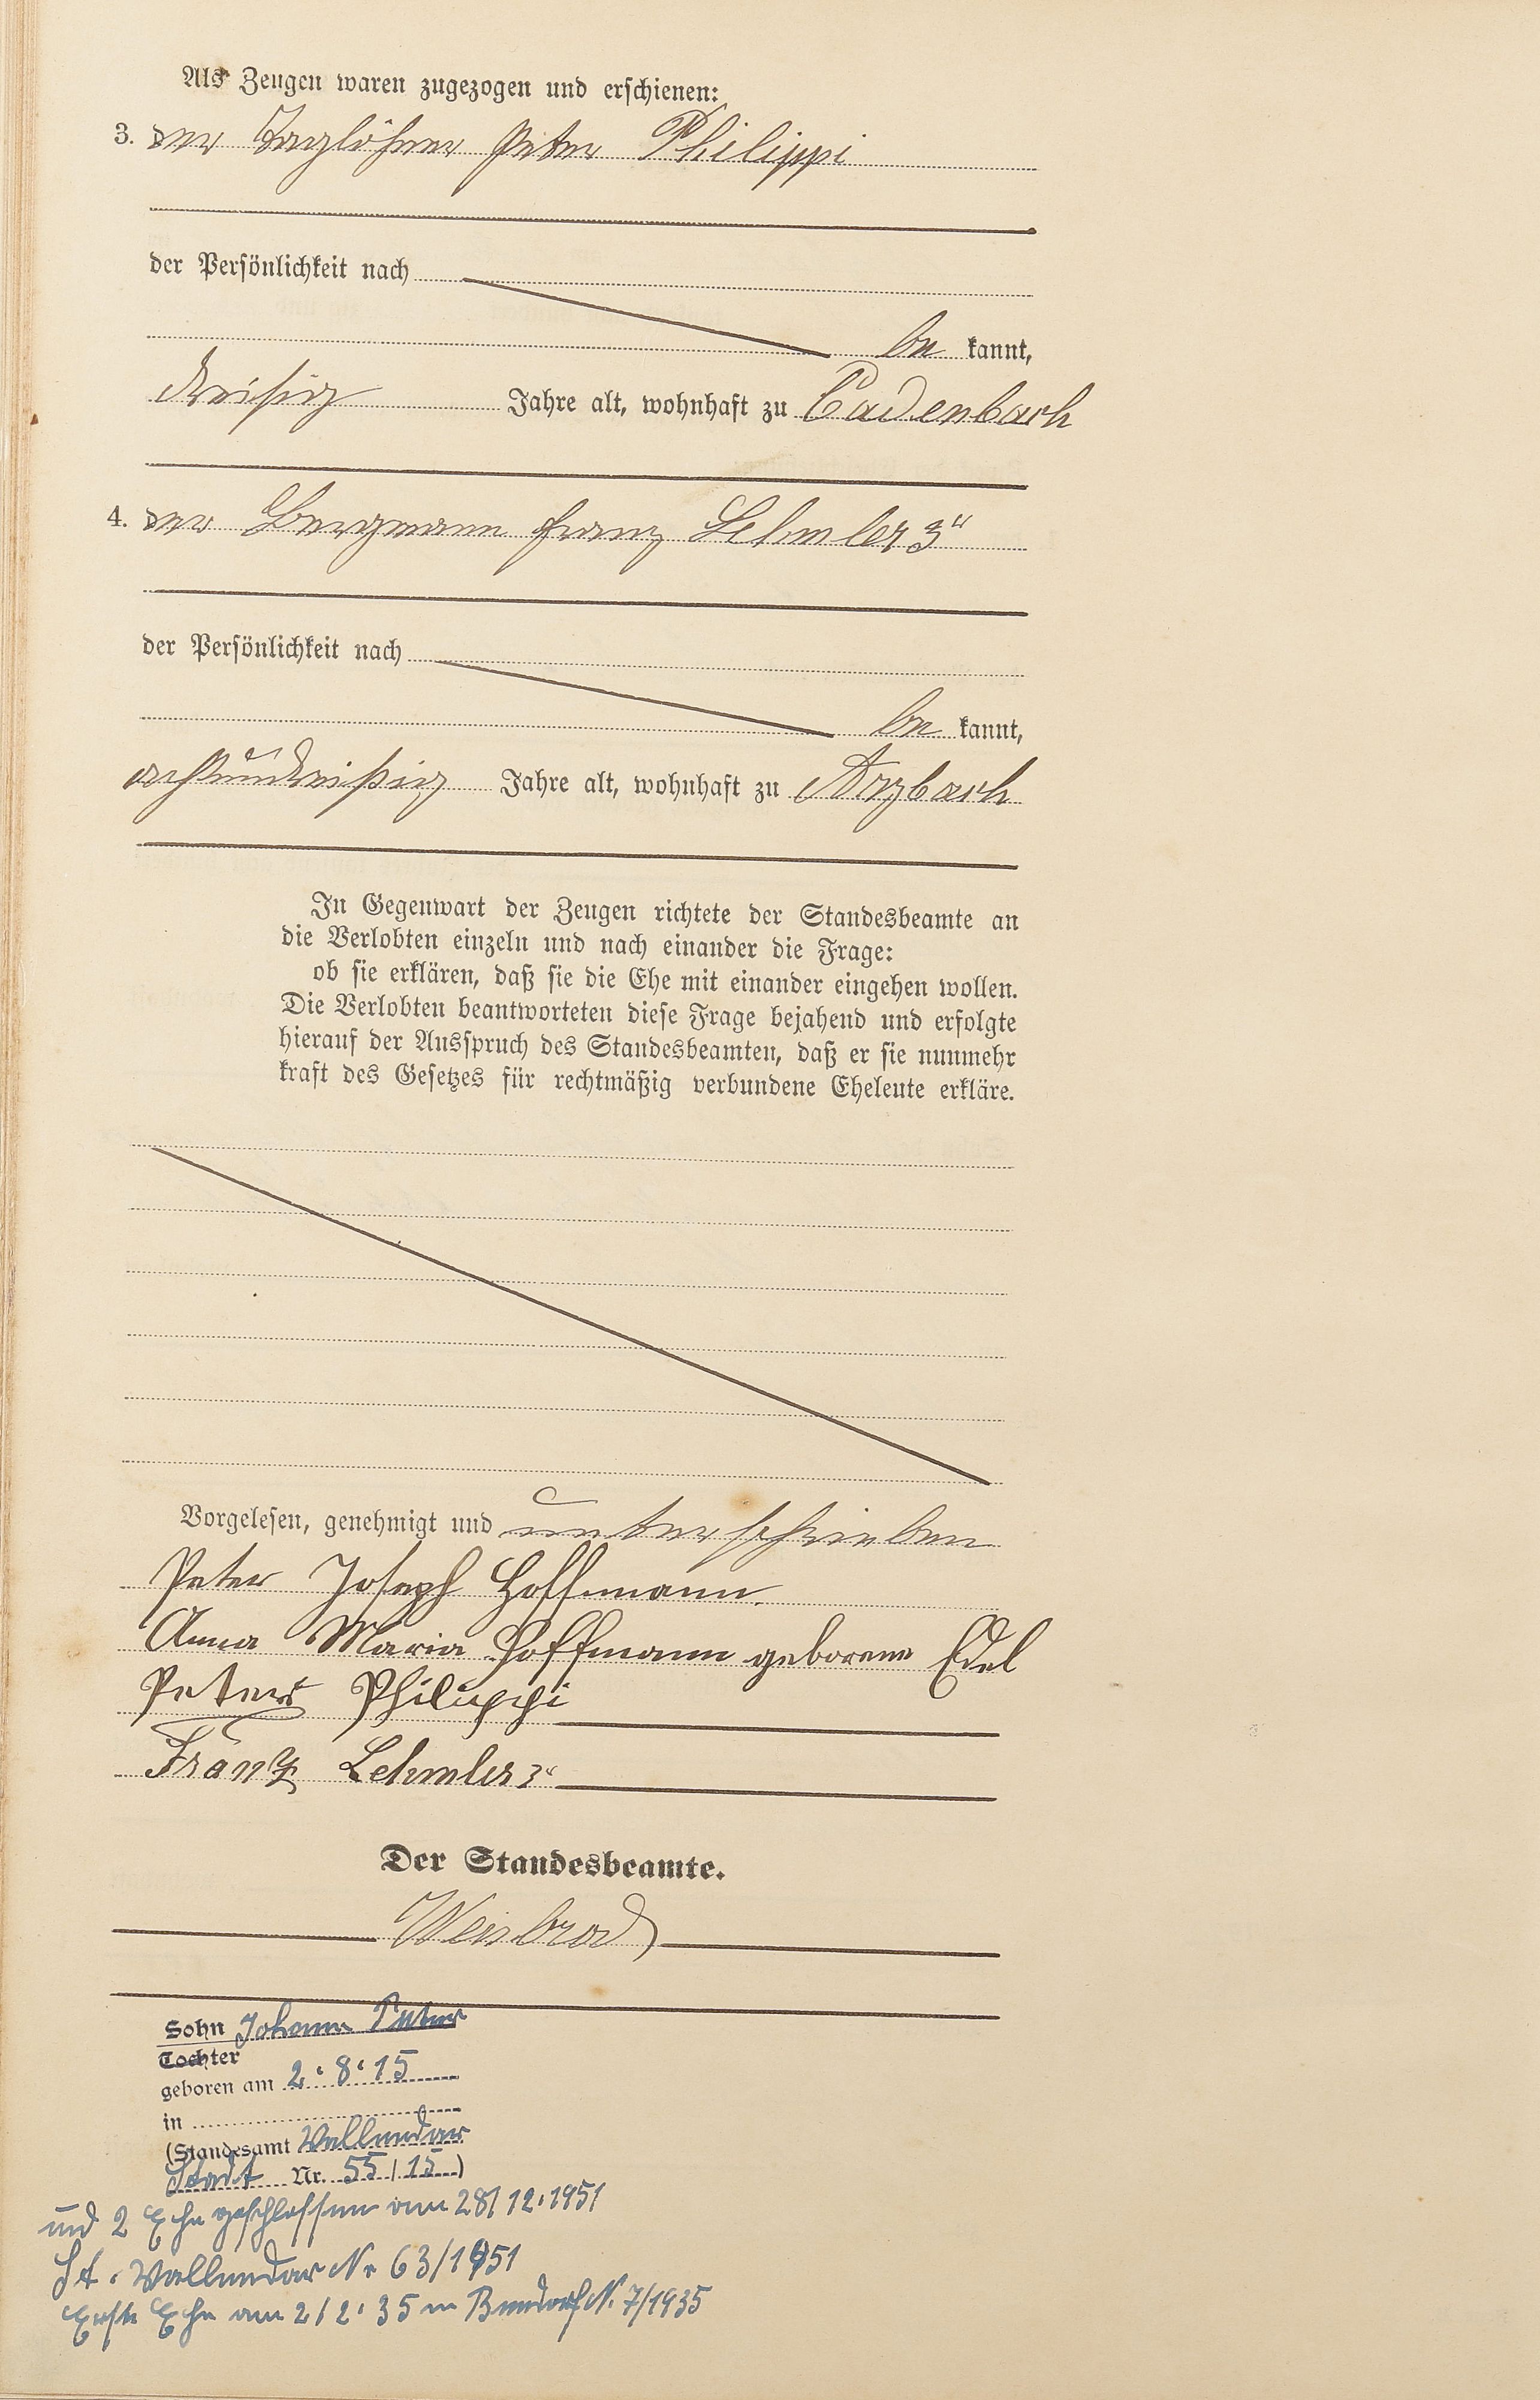 Als Zeugen waren zugezogen und erschienen:
3. der Taglöhner Peter Philippi
der Persönlichkeit nach
be kannt,
dreißig Jahre alt, wohnhaft zu Cadenbach
4. der Bergmann Franz Lehmler 3"
der Persönlichkeit nach
be kannt,
achtunddreißig Jahre alt, wohnhaft zu Arzbach
In Gegenwart der Zeugen richtete der Standesbeamte an
die Verlobten einzeln und nach einander die Frage:
ob sie erklären, daß sie die Ehe mit einander eingehen wollen.
Die Verlobten beantworteten diese Frage bejahend und erfolgte
hierauf der Ausspruch des Standesbeamten, daß er sie nunmehr
kraft des Gesetzes für rechtmäßig verbundene Eheleute erkläre.
Vorgelesen, genehmigt und unterschrieben
Peter Joseph Hoffmann.
Anna Maria Hoffmann geborene Edel
Peter Philippi
Franz Lehmler 3"
Der Standesbeamte.
Weisbrod
Sohn Johann Peter
Tochter
geboren am 2.8.15
in
(Standesamt Vallendar
Stadt Nr. 55/15)
und 2 Ehe geschlossen am 28/12.1951
St. Vallendar Nr 63/1951
Erste Ehe am 2/2.35 in Bendorf N. 7/1935